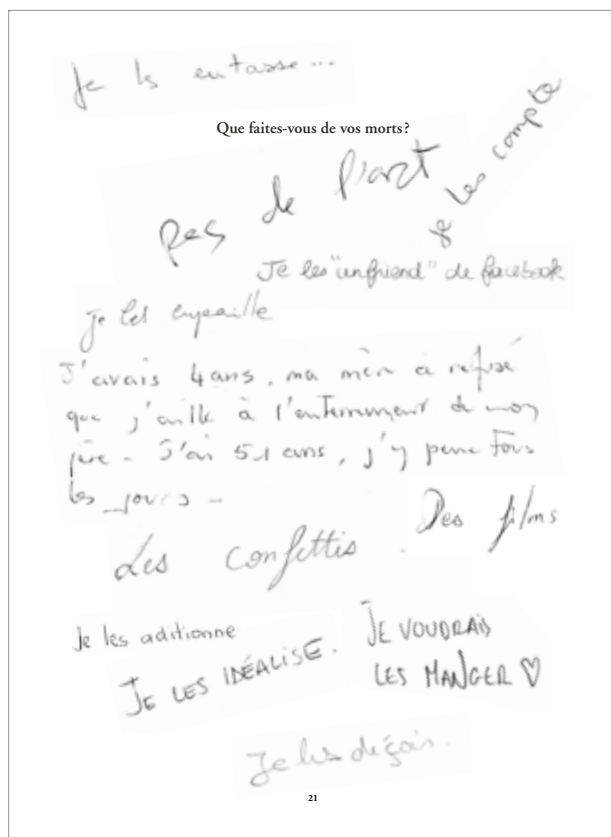 Je les entasse...
Que faites-vous de vos morts?
Pas de l'art
Je les compte
Je les "unfriend" de facebook
je les empaille
J'avais 4 ans, ma mère a refusé
que j'aille à l'enterrement de mon
père - J'ai 51 ans, j'y pense tous
les jours -
Des films
Les confettis.
Je les aditionne
JE LES IDÉALISE.
JE VOUDRAIS
LES MANGER ♡
Je les déçois.
21